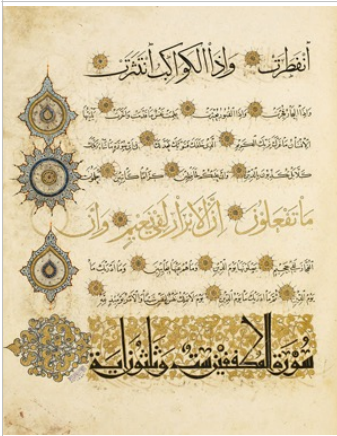 انفطرت وإذا الكواكب انتثرت
وإذا البحار فجرت وإذا القبور بعثرت علمت نفس ما قدمت وأخرت يا أيها
الإنسان ما غرك بربك الكريم الذي خلقك فسويك فعدلك في أي صورة ما شاء ركبك
كلا بل تكذبون بالدين وإن عليكم لحافظين كراما كاتبين يعلمون
ما تفعلون إن الأبرار لفي نعيم وإن
الفجار لفي جحيم يصلونها يوم الدين وما هم عنها بغائبين وما أدريك ما
يوم الدين ثم ما أدريك ما يوم الدين يوم لا تملك نفس لنفس شيئا والأمر يومئذ لله
سورة المطففين ست وثلثون اية